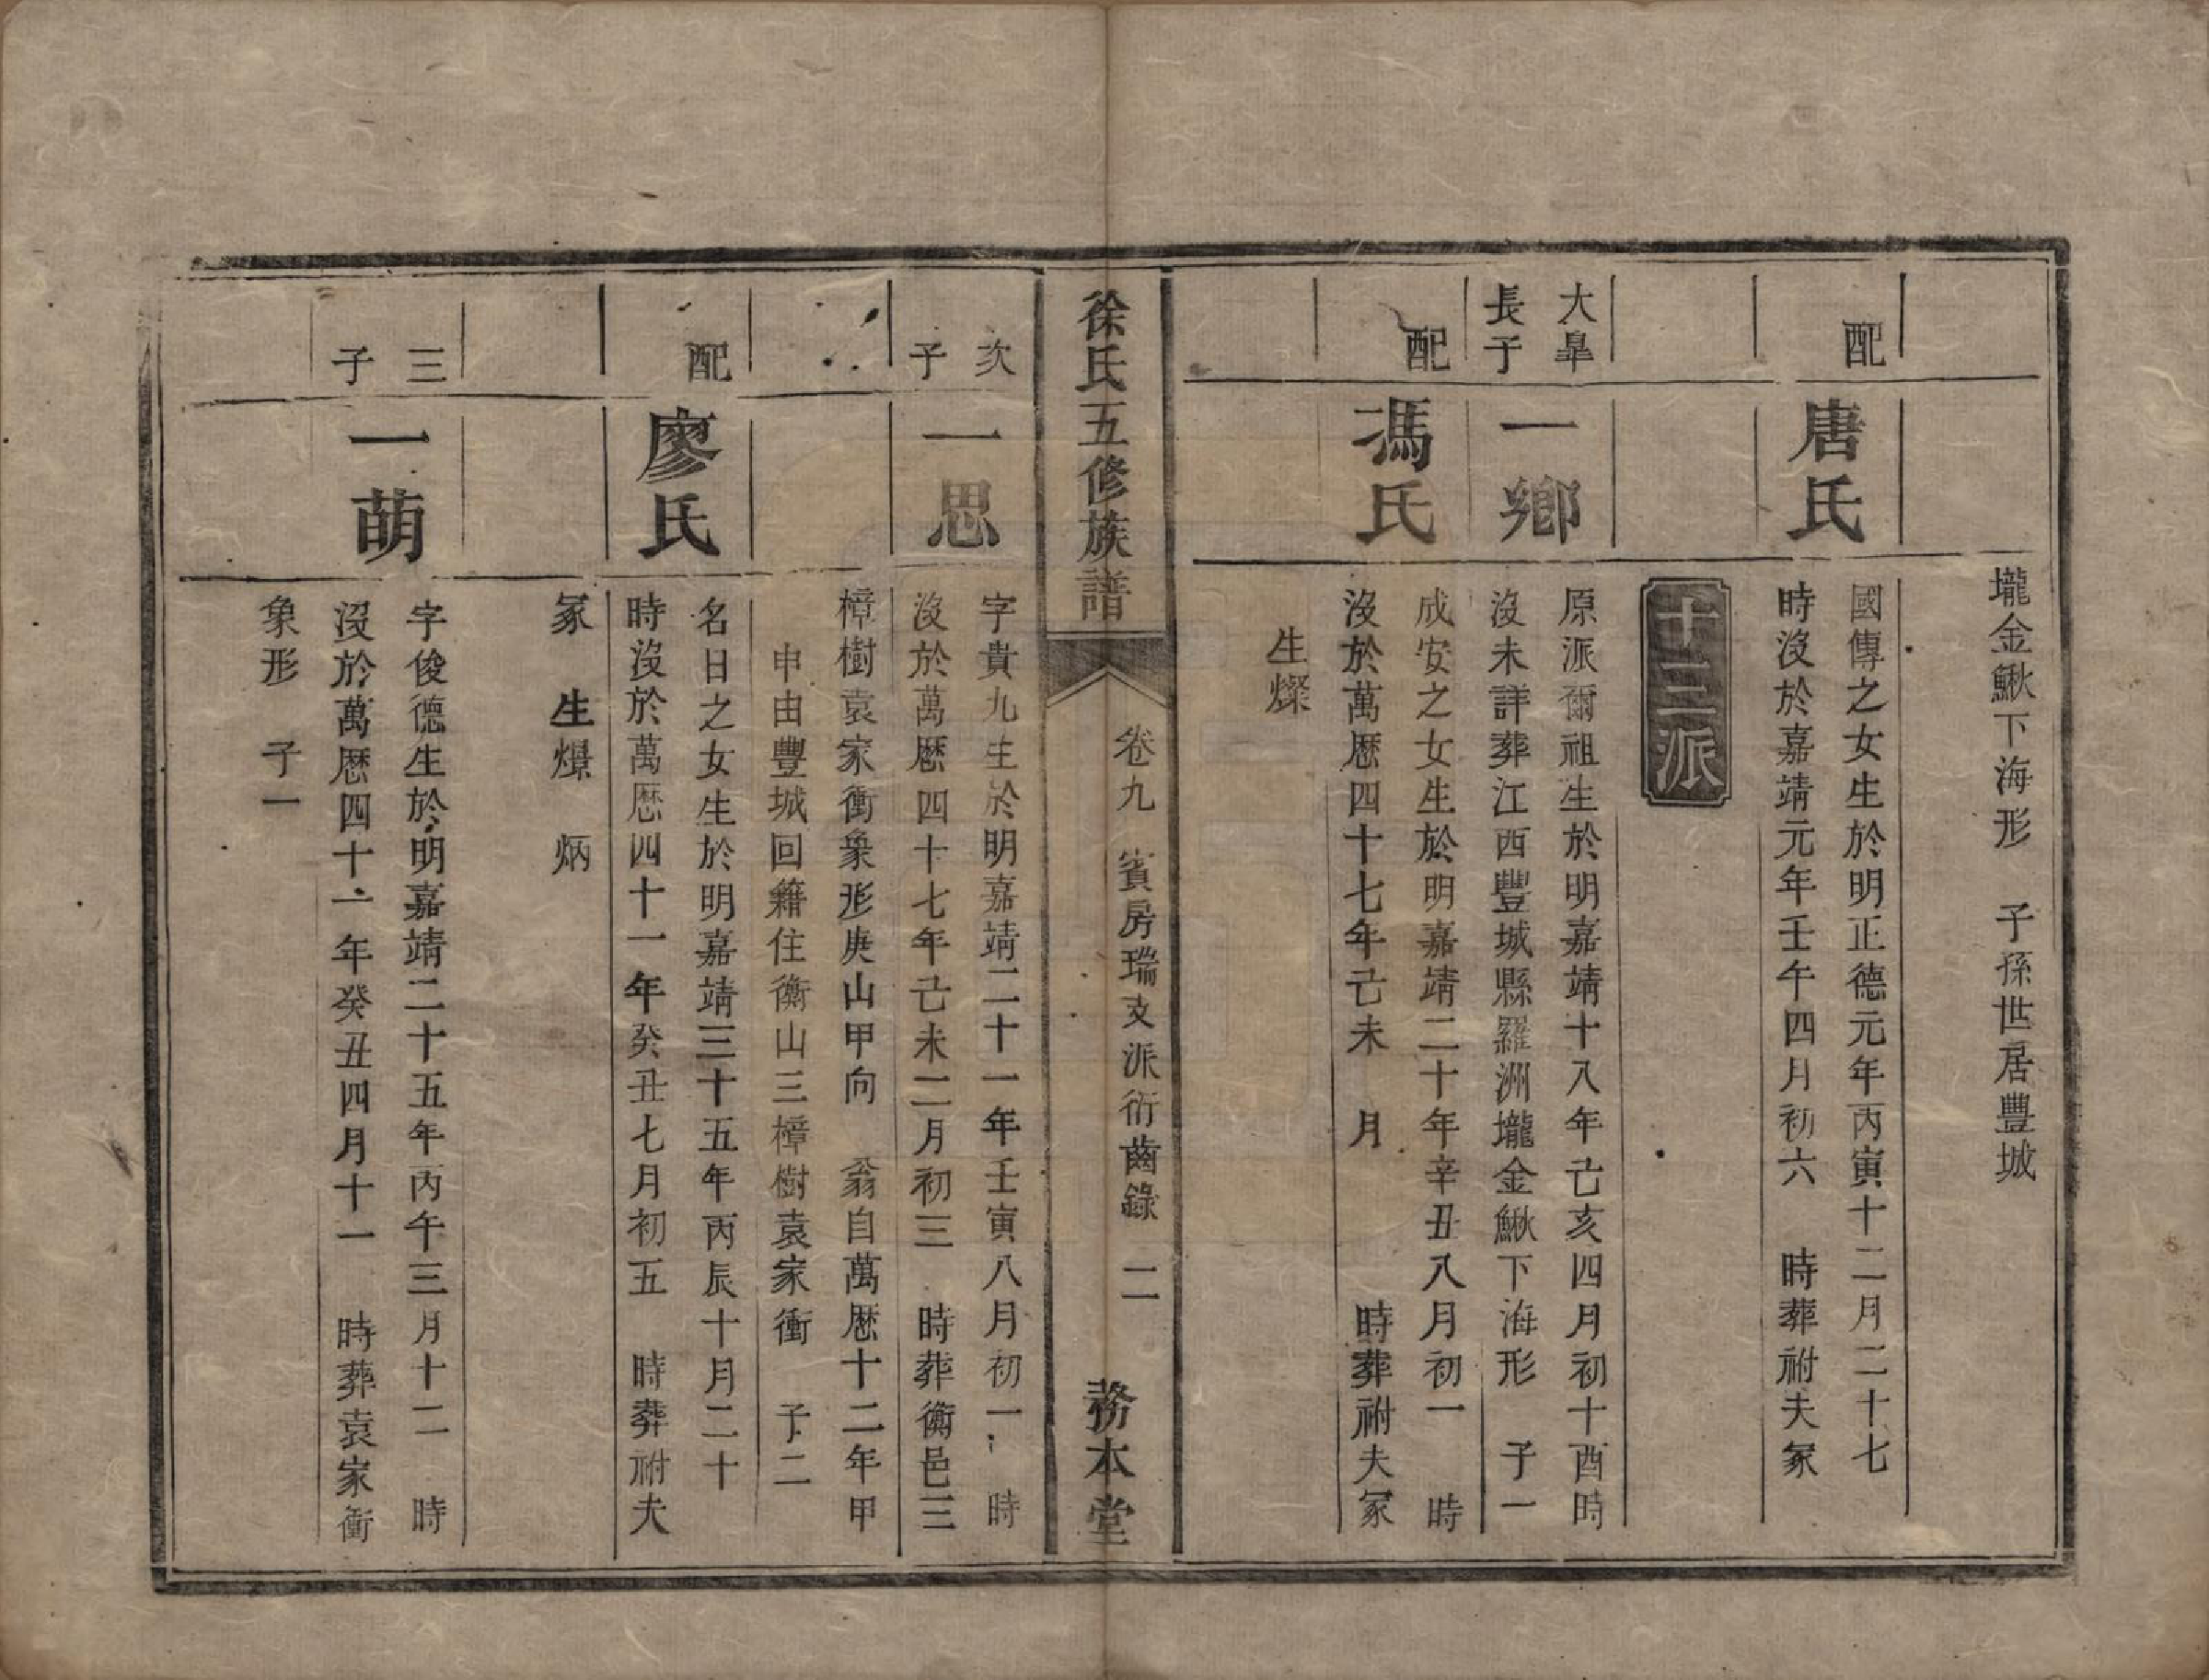 壠金鰍下海形　子孫世居豐城
配
唐氏
國傳之女生於明正德元年丙寅十二月二十七
時沒於嘉靖元年壬午四月初六　時葬祔夫冢
十三派
大臯
長子
一鄉
原派爾祖生於明嘉靖十八年己亥四月初十酉時
沒未詳葬江西豐城縣羅洲壠金鰍下海形　子一
配
馮氏
成安之女生於明嘉靖二十年辛丑八月初一　時
沒於萬厯四十七年己未　月　　時葬祔夫冢
生燦
徐氏五修族譜
卷九　賓房瑞支派衍齒錄　二
務本堂
次
子
一思
字貴九生於明嘉靖二十一年壬寅八月初一　時
沒於萬厯四十七年己未二月初三　時葬衡邑三
樟樹袁家衝象形庚山甲向　翁自萬厯十二年甲
申由豐城回籍住衡山三樟樹袁家衝　子二
配
廖氏
名日之女生於明嘉靖三十五年丙辰十月二十
時沒於萬厯四十一年癸丑七月初五　時葬祔夫
冢　生燝　炳
三
子
一萌
字俊德生於明嘉靖二十五年丙午三月十二　時
沒於萬厯四十一年癸丑四月十一　時葬袁家衝
象形　子一